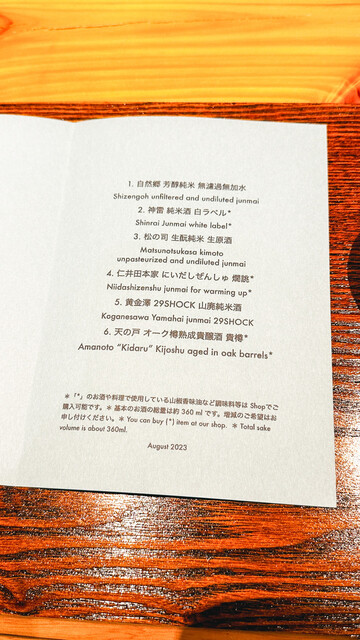 1. 自然郷 芳醇純米 無濾過無加水
Shizengoh unfiltered and undiluted junmai
2. 神雷 純米酒 白ラベル*
Shinrai Junmai white label*
3. 松の司 生酛純米 生原酒
Matsunotsukasa kimoto
unpasteurized and undiluted junmai
4. 仁井田本家 にいだしぜんしゅ 燗誂*
Niidashizenshu junmai for warming up*
5. 黄金澤 29SHOCK 山廃純米酒
Koganesawa Yamahai junmai 29SHOCK
6. 天の戸 オーク樽熟成貴醸酒 貴樽*
Amanoto "Kidaru" Kijoshu aged in oak barrels*
＊「*」のお酒や料理で使用している山椒香味油など調味料等は Shopでご
購入可能です。＊ 基本のお酒の総量は約 360 ml です。増減のご希望はお
申し付けください。＊ You can buy (*) item at our shop. ＊ Total sake
volume is about 360ml.
August 2023